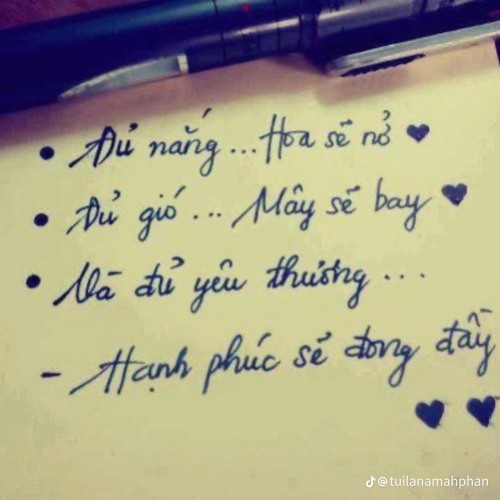 • Đủ nắng... Hoa sẽ nở ♥
• Đủ gió... Mây sẽ bay ♥
• Và đủ yêu thương...
- Hạnh phúc sẽ đong đầy
♥ ♥
@tuilanamahphan